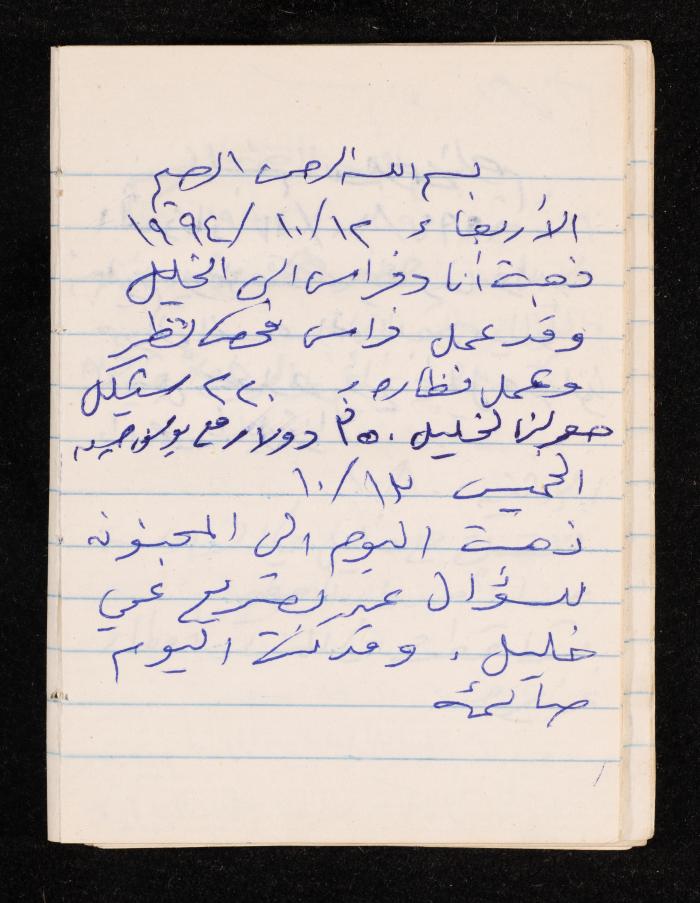 بسم الله الرحمن الرحيم
الأربعاء ١٢/١٠/١٩٩٤
ذهبت أنا وفراس الى الخليل
وقد عمل فراس فحص نظر
وعمل نظاره بـ ٢٢٠ شيكل
لخليل ٣٥٠ دولار مع
الخميس ١٣/١٠
ذهبت اليوم الى المجنونه
للسؤال عن تصريح عمي
خليل. وقد كنت اليوم
صائمة